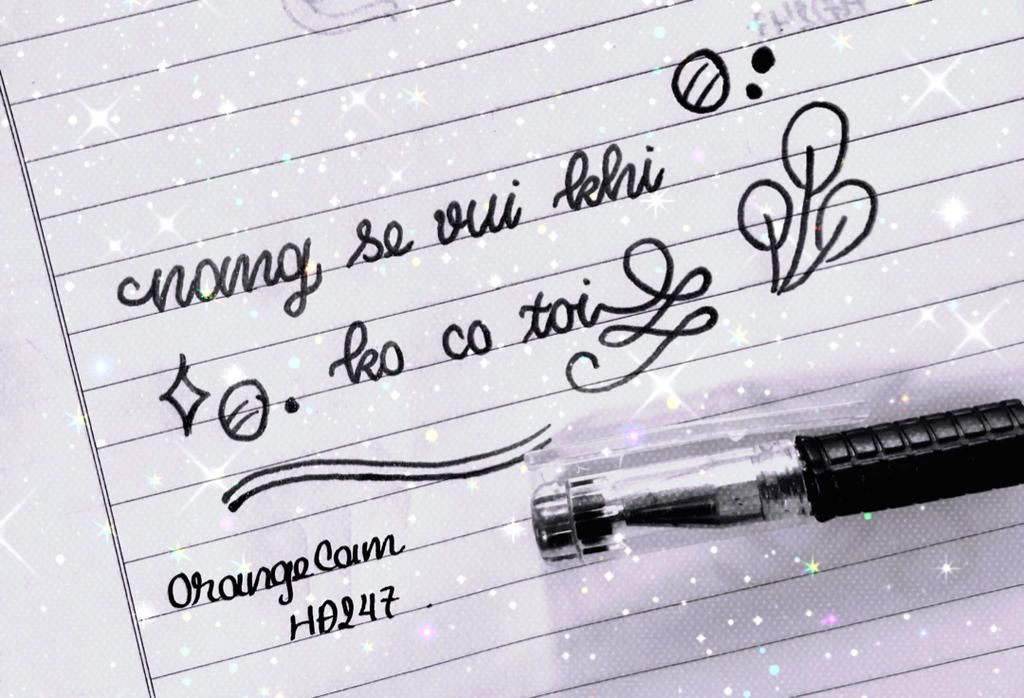 nang se vui khi
ko co toi
OrangeCam
HĐ247